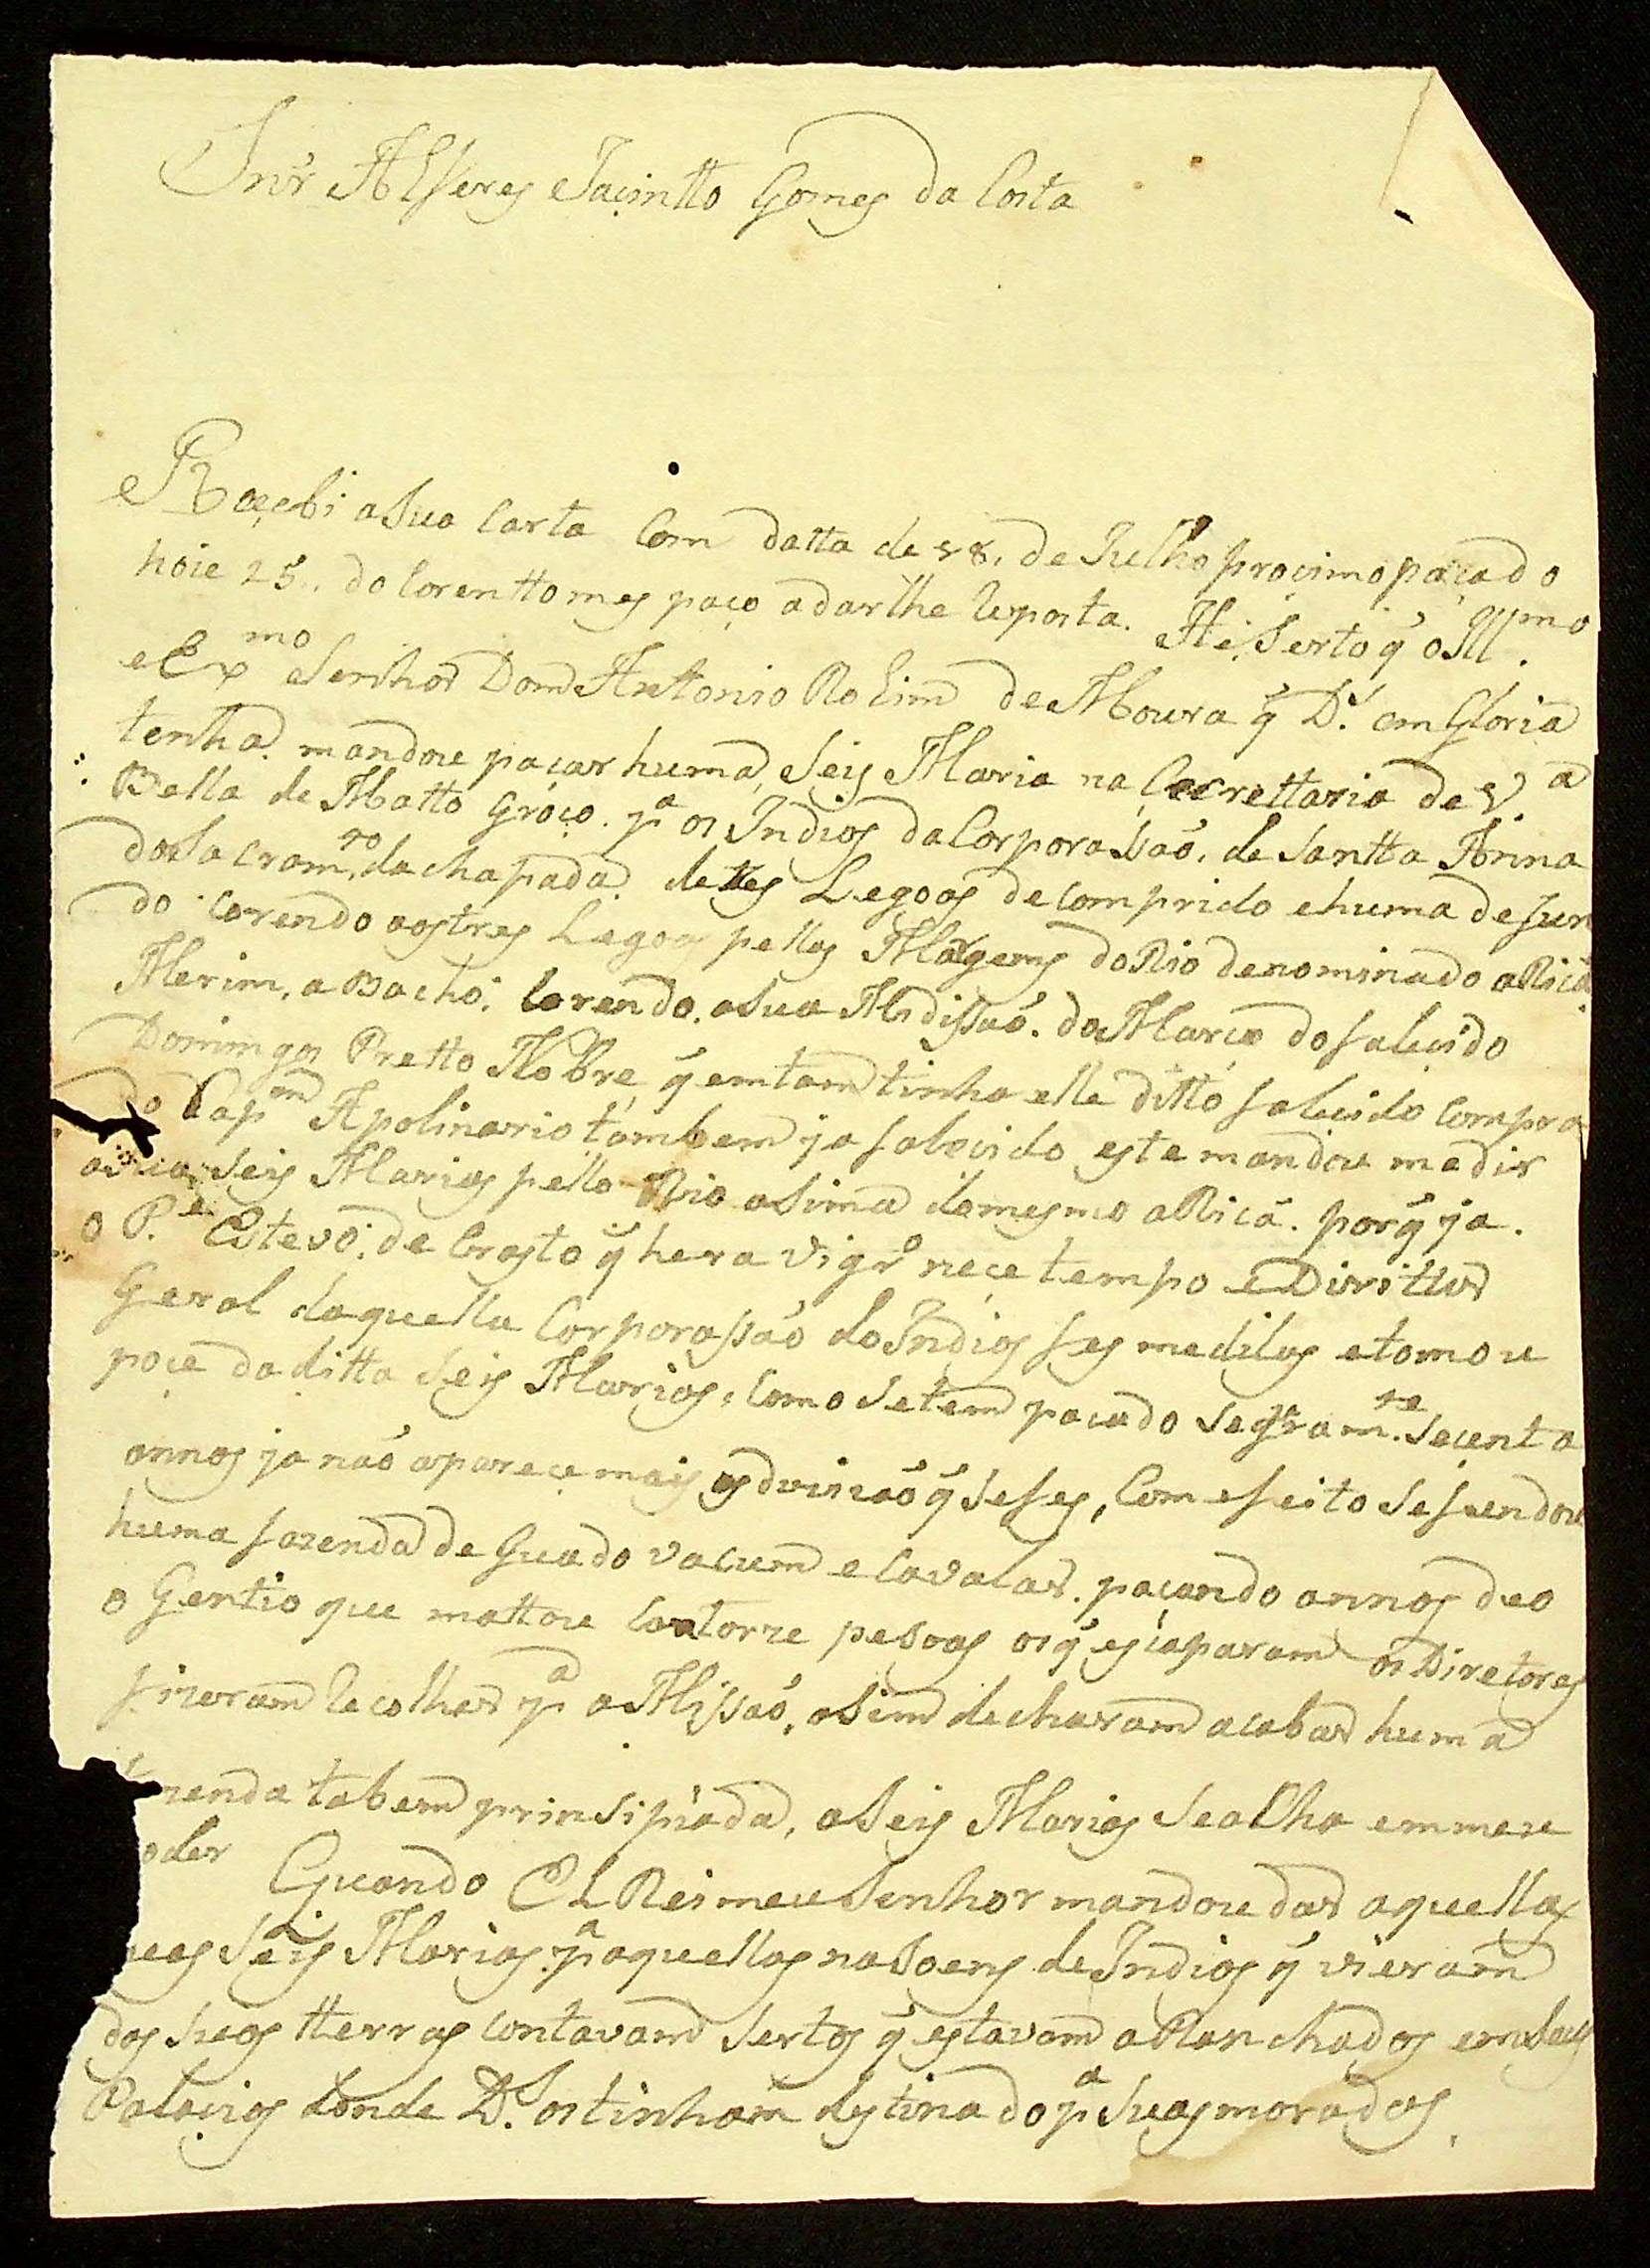 Snr̃ Alferes Jacintto Gomes da Costa
Reçebi aSua Carta Com datta de 28. de Julho procimo paçado
hoie 25.. do Corentto mes paço adarlhe Reposta. He Serto q̃ o Ill.mo
e Exmo Senhor Dom Antonio Rolim de Moura q̃ D.s em Gloria
tenha mandou paçar huma Seis Maria na Cecrettaria de V.a
Bella de Matto Groço. pa os Indios da Corporassaó, de Santta Anna
do Sacramto. da chapada de tres Legoas de Comprido e huma de fun
do Corendo as tres Legoas pellas Margems do Rio denominado aRica
Merim, aBacho. Corendo. aSua Midissaó. do Marco do falecido
Domingos Pretto Nobre, q̃ emtam tinha elle ditto falecido Compra
do Capm Apolinario tambem ja falecido este mandou medir
a Seis Marias pello Rio aSima do mesmo aRicá. porq̃ ja.
o P.e Estevó. de Crasto q̃ hera Vigro neçe tempo e Dirittor
Geral daquella Corporassaó do Indios fes medilas e tomou
poçe da ditta Seis Marias, Como Se tem paçado Segram.te Secenta
annos ja naó apareçe mais as divizaó q̃ Se fes, Com efeito Se fundou
huma fazenda de Guado vacum e Cavalar. paçando annos deo
o Gentio que mattou Catorze pesoas os q̃ escaparam os Diretores
fizeram Recolher pa a Missaó, aSim decharam acabar huma
zenda tabem prinsipiada, aSeis Marias Se alha em meu
oder Quando El Rei meu Senhor mandou dar aquellas
uas Seis Marias. pa aquellas naSoens de Indios q̃ vieram
das Suas tterras Contavam Sertos q̃ estavam aRanchados em Seus
Palacios donde D.s os tinham destinado pa Suas moradas,